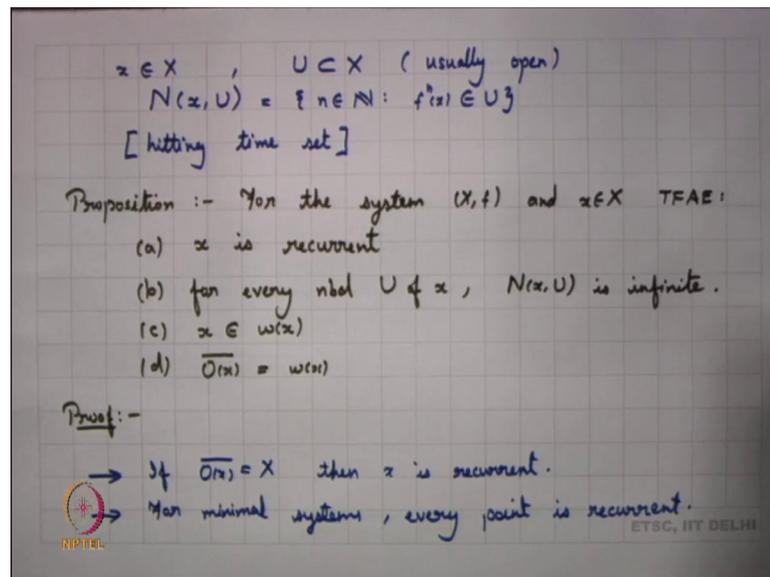 x ∈ X , U ⊂ X ( usually open)
N(x, U) = { n ∈ ℕ : fⁿ(x) ∈ U }
[ hitting time set ]
Proposition :- For the system (X, f) and x ∈ X TFAE :
(a) x is recurrent
(b) for every nbd U of x , N(x, U) is infinite .
(c) x ∈ ω(x)
(d) \overline{O(x)} = ω(x)
Proof :-
→ If \overline{O(x)} = X then x is recurrent .
→ For minimal systems , every point is recurrent .
ETSC, IIT DELHI
NPTEL